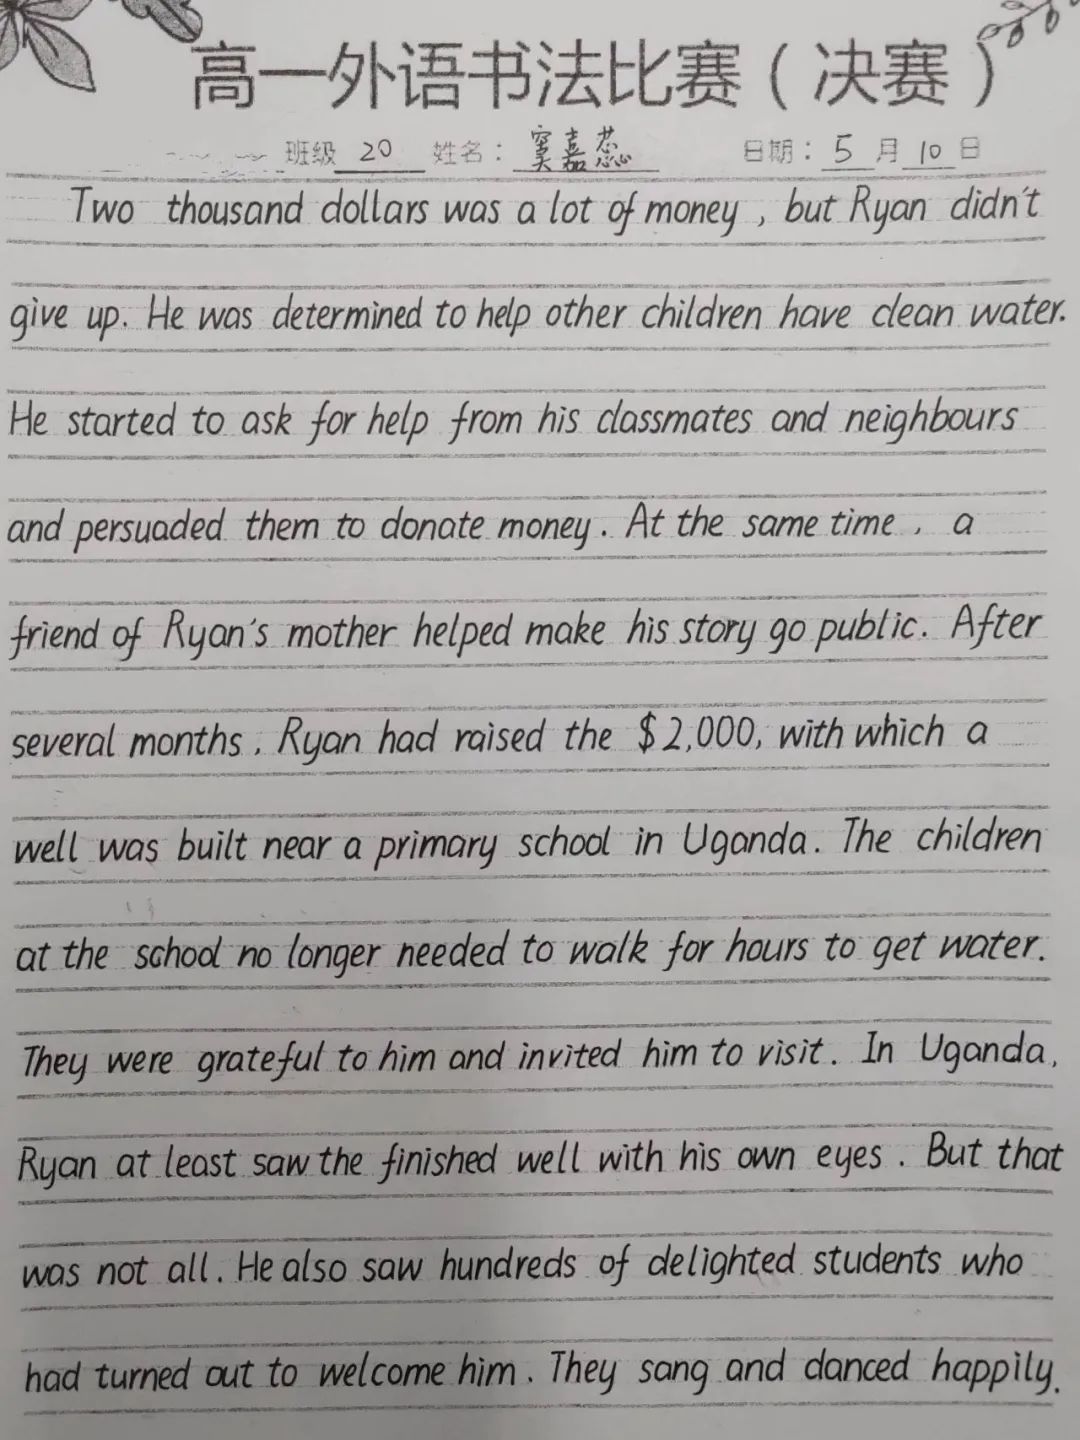 高一外语书法比赛（决赛）
班级 20 姓名： 窦嘉蕊 日期：5月10日
Two thousand dollars was a lot of money, but Ryan didn't
give up. He was determined to help other children have clean water.
He started to ask for help from his classmates and neighbours
and persuaded them to donate money. At the same time, a
friend of Ryan's mother helped make his story go public. After
several months, Ryan had raised the $2,000, with which a
well was built near a primary school in Uganda. The children
at the school no longer needed to walk for hours to get water.
They were grateful to him and invited him to visit. In Uganda,
Ryan at least saw the finished well with his own eyes. But that
was not all. He also saw hundreds of delighted students who
had turned out to welcome him. They sang and danced happily.